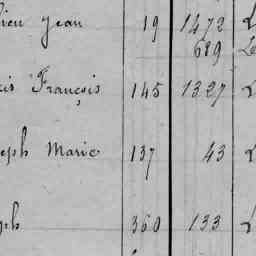 ieu Jean 19 1472 L
689 L
is François 145 1327 L
eph Marie 137 43 L
ph 360 133 L